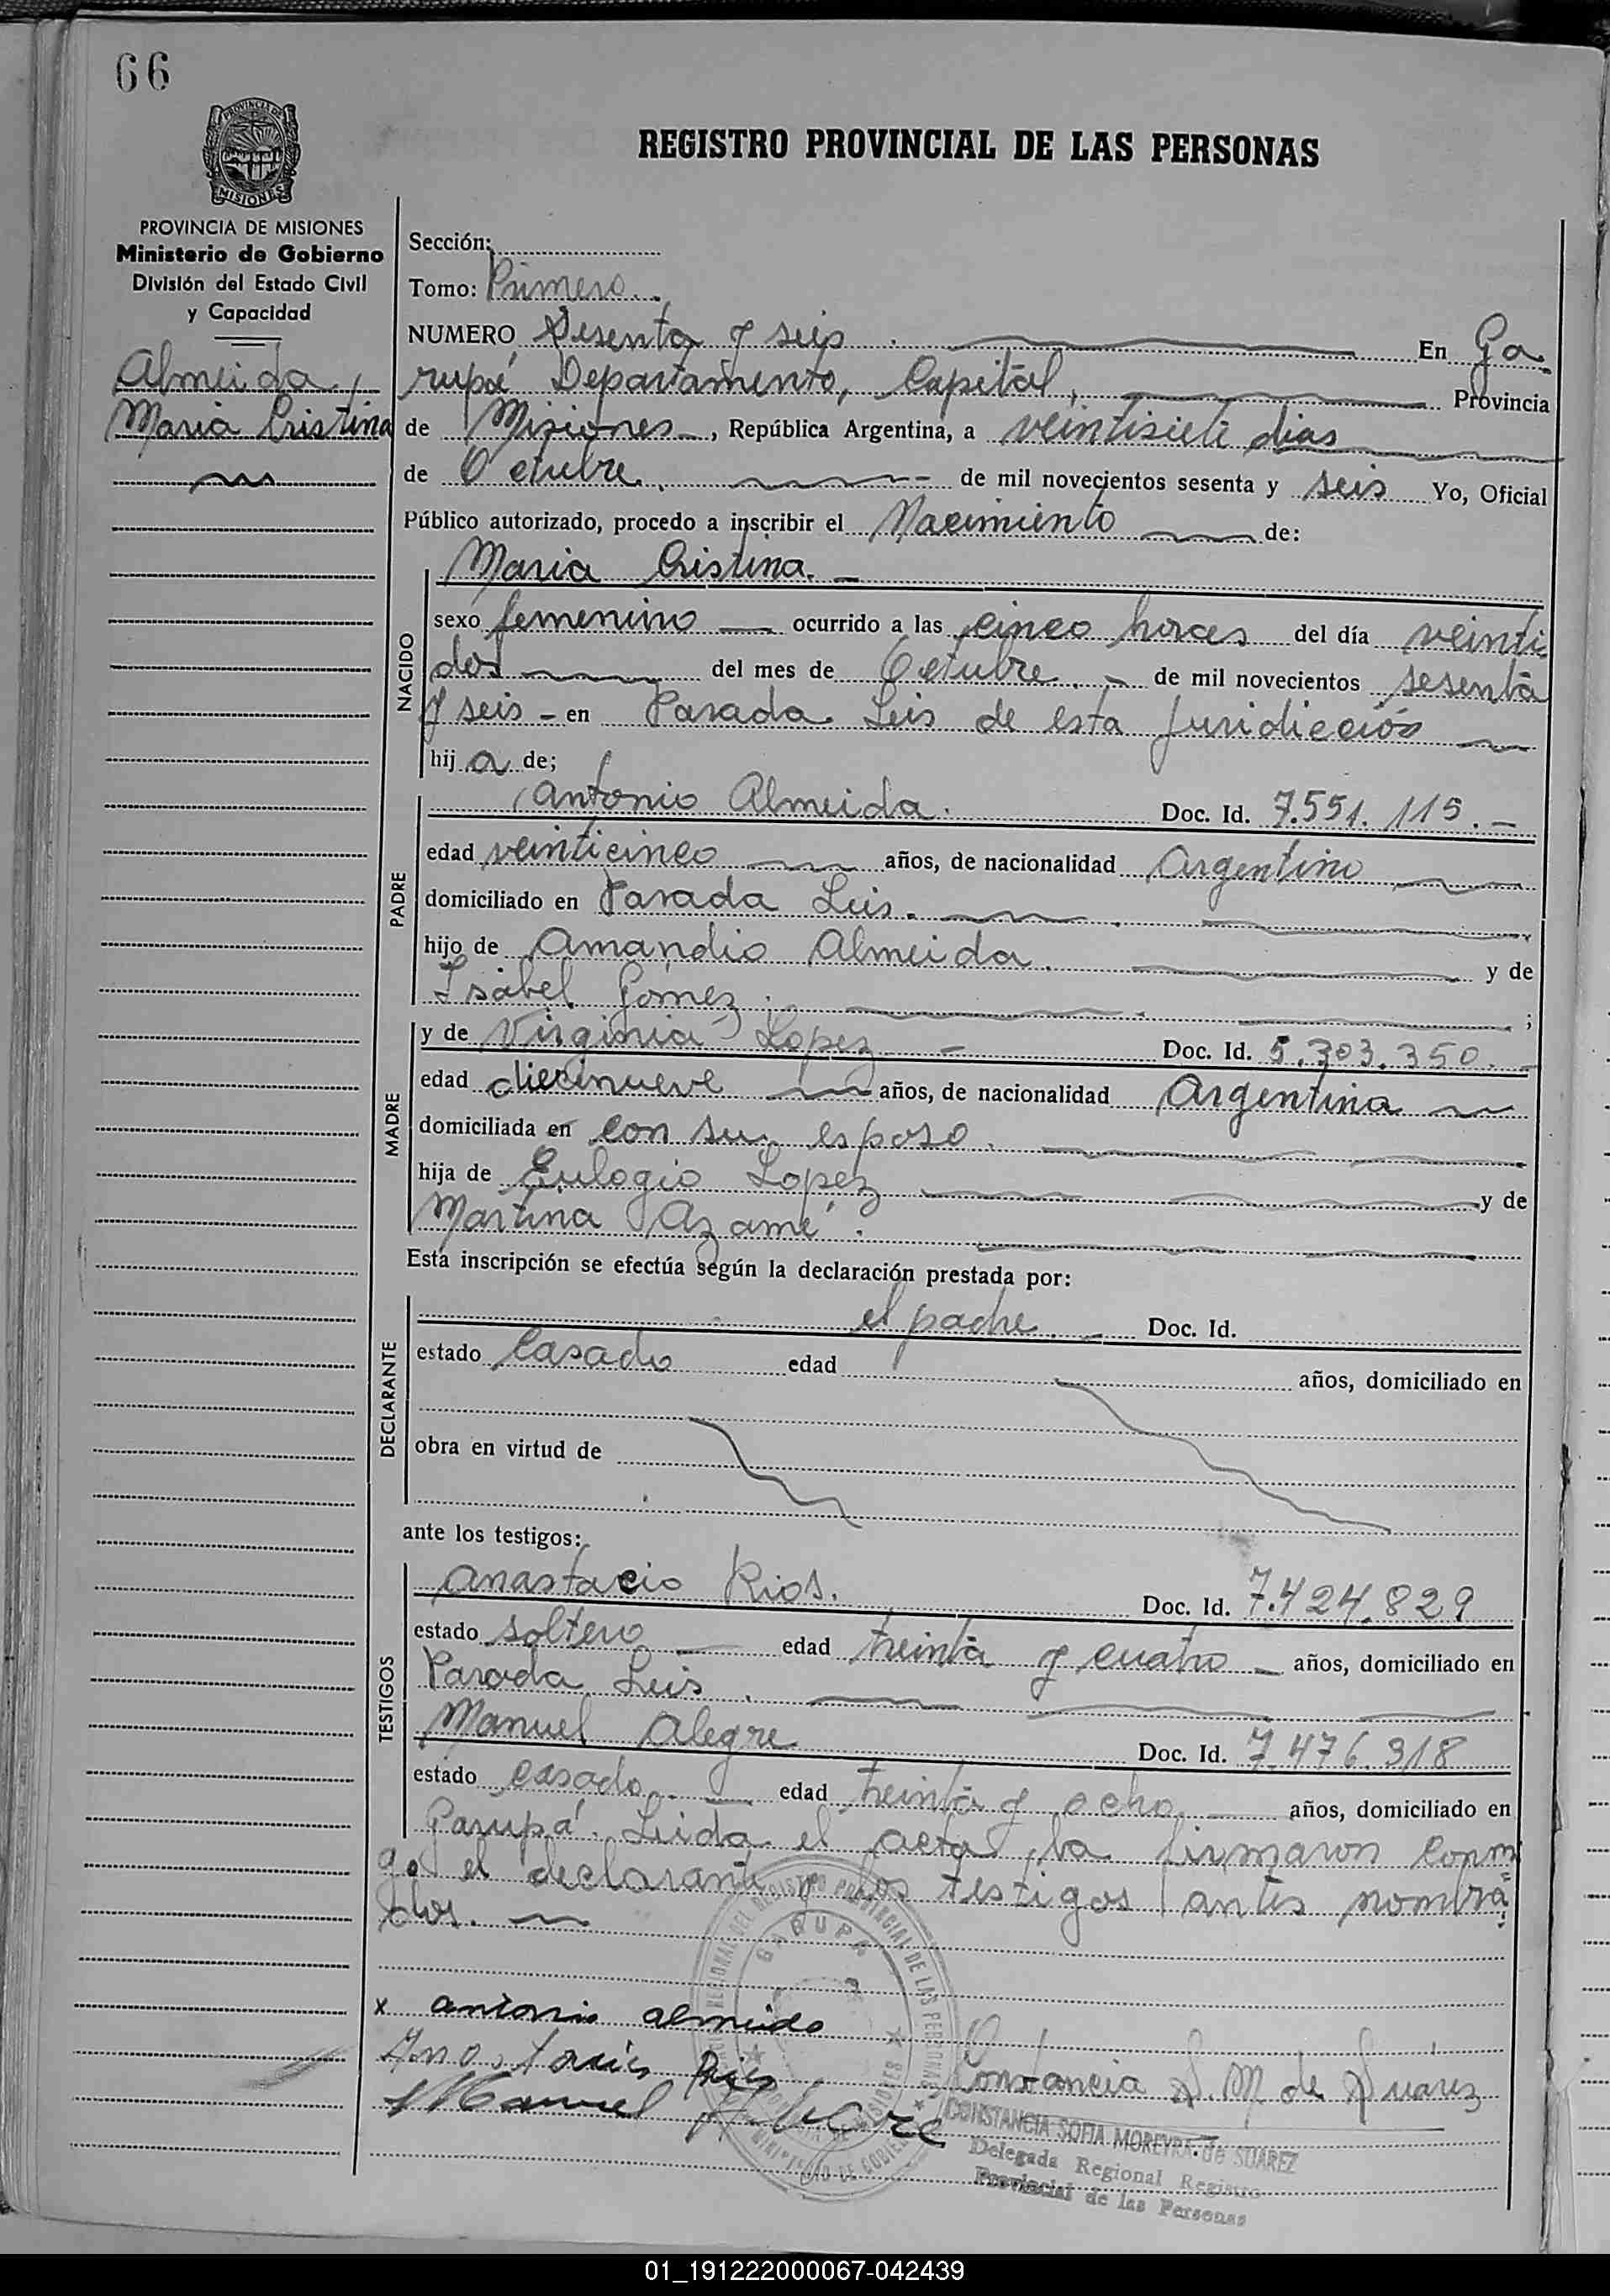 66
PROVINCIA DE
MISIONES
REGISTRO PROVINCIAL DE LAS PERSONAS
PROVINCIA DE MISIONES
Ministerio de Gobierno
División del Estado Civil
y Capacidad
Almeida,
Maria Cristina
Sección:
Tomo: Primero.
NUMERO Sesenta y seis. En Ga
rupá Departamento, Capital, Provincia
de Misiones, República Argentina, a veintisiete dias
de Octubre. de mil novecientos sesenta y seis Yo, Oficial
Público autorizado, procedo a inscribir el Nacimiento de:
NACIDO
Maria Cristina.
sexo femenino ocurrido a las cinco horas del día veinti
dos del mes de Octubre. de mil novecientos sesenta
y seis - en Parada Leis de esta Juridicción
hij a de;
PADRE
Antonio Almeida. Doc. Id. 7.551.115.
edad veinticinco años, de nacionalidad Argentino
domiciliado en Parada Leis.
hijo de Amandio Almeida. y de
Isabel Gomez. ;
MADRE
y de Virginia Lopez Doc. Id. 5.303.350.
edad diecinueve años, de nacionalidad Argentina
domiciliada en con su esposo.
hija de Eulogio Lopez y de
Martina Azamé.
Esta inscripción se efectúa según la declaración prestada por:
DECLARANTE
el padre. Doc. Id.
estado Casado edad años, domiciliado en
obra en virtud de
ante los testigos:
TESTIGOS
Anastacio Rios. Doc. Id. 7.424.829
estado soltero edad treinta y cuatro años, domiciliado en
Parada Leis.
Manuel Alegre Doc. Id. 7.476.318
estado casado. edad treinta y ocho años, domiciliado en
Garupá. Leida el acta, la firmaron conmi
go el declarante y los testigos antes nombra
dos.
REGISTRO PROVINCIAL DE LAS PERSONAS
GARUPA
x antonio almeida
Anastacio Rios
Manuel Alegre
Constancia S. M de Suarez
CONSTANCIA SOFIA MOREYRA de SUAREZ
Delegada Regional Registro
Provincial de las Personas
01_191222000067-042439